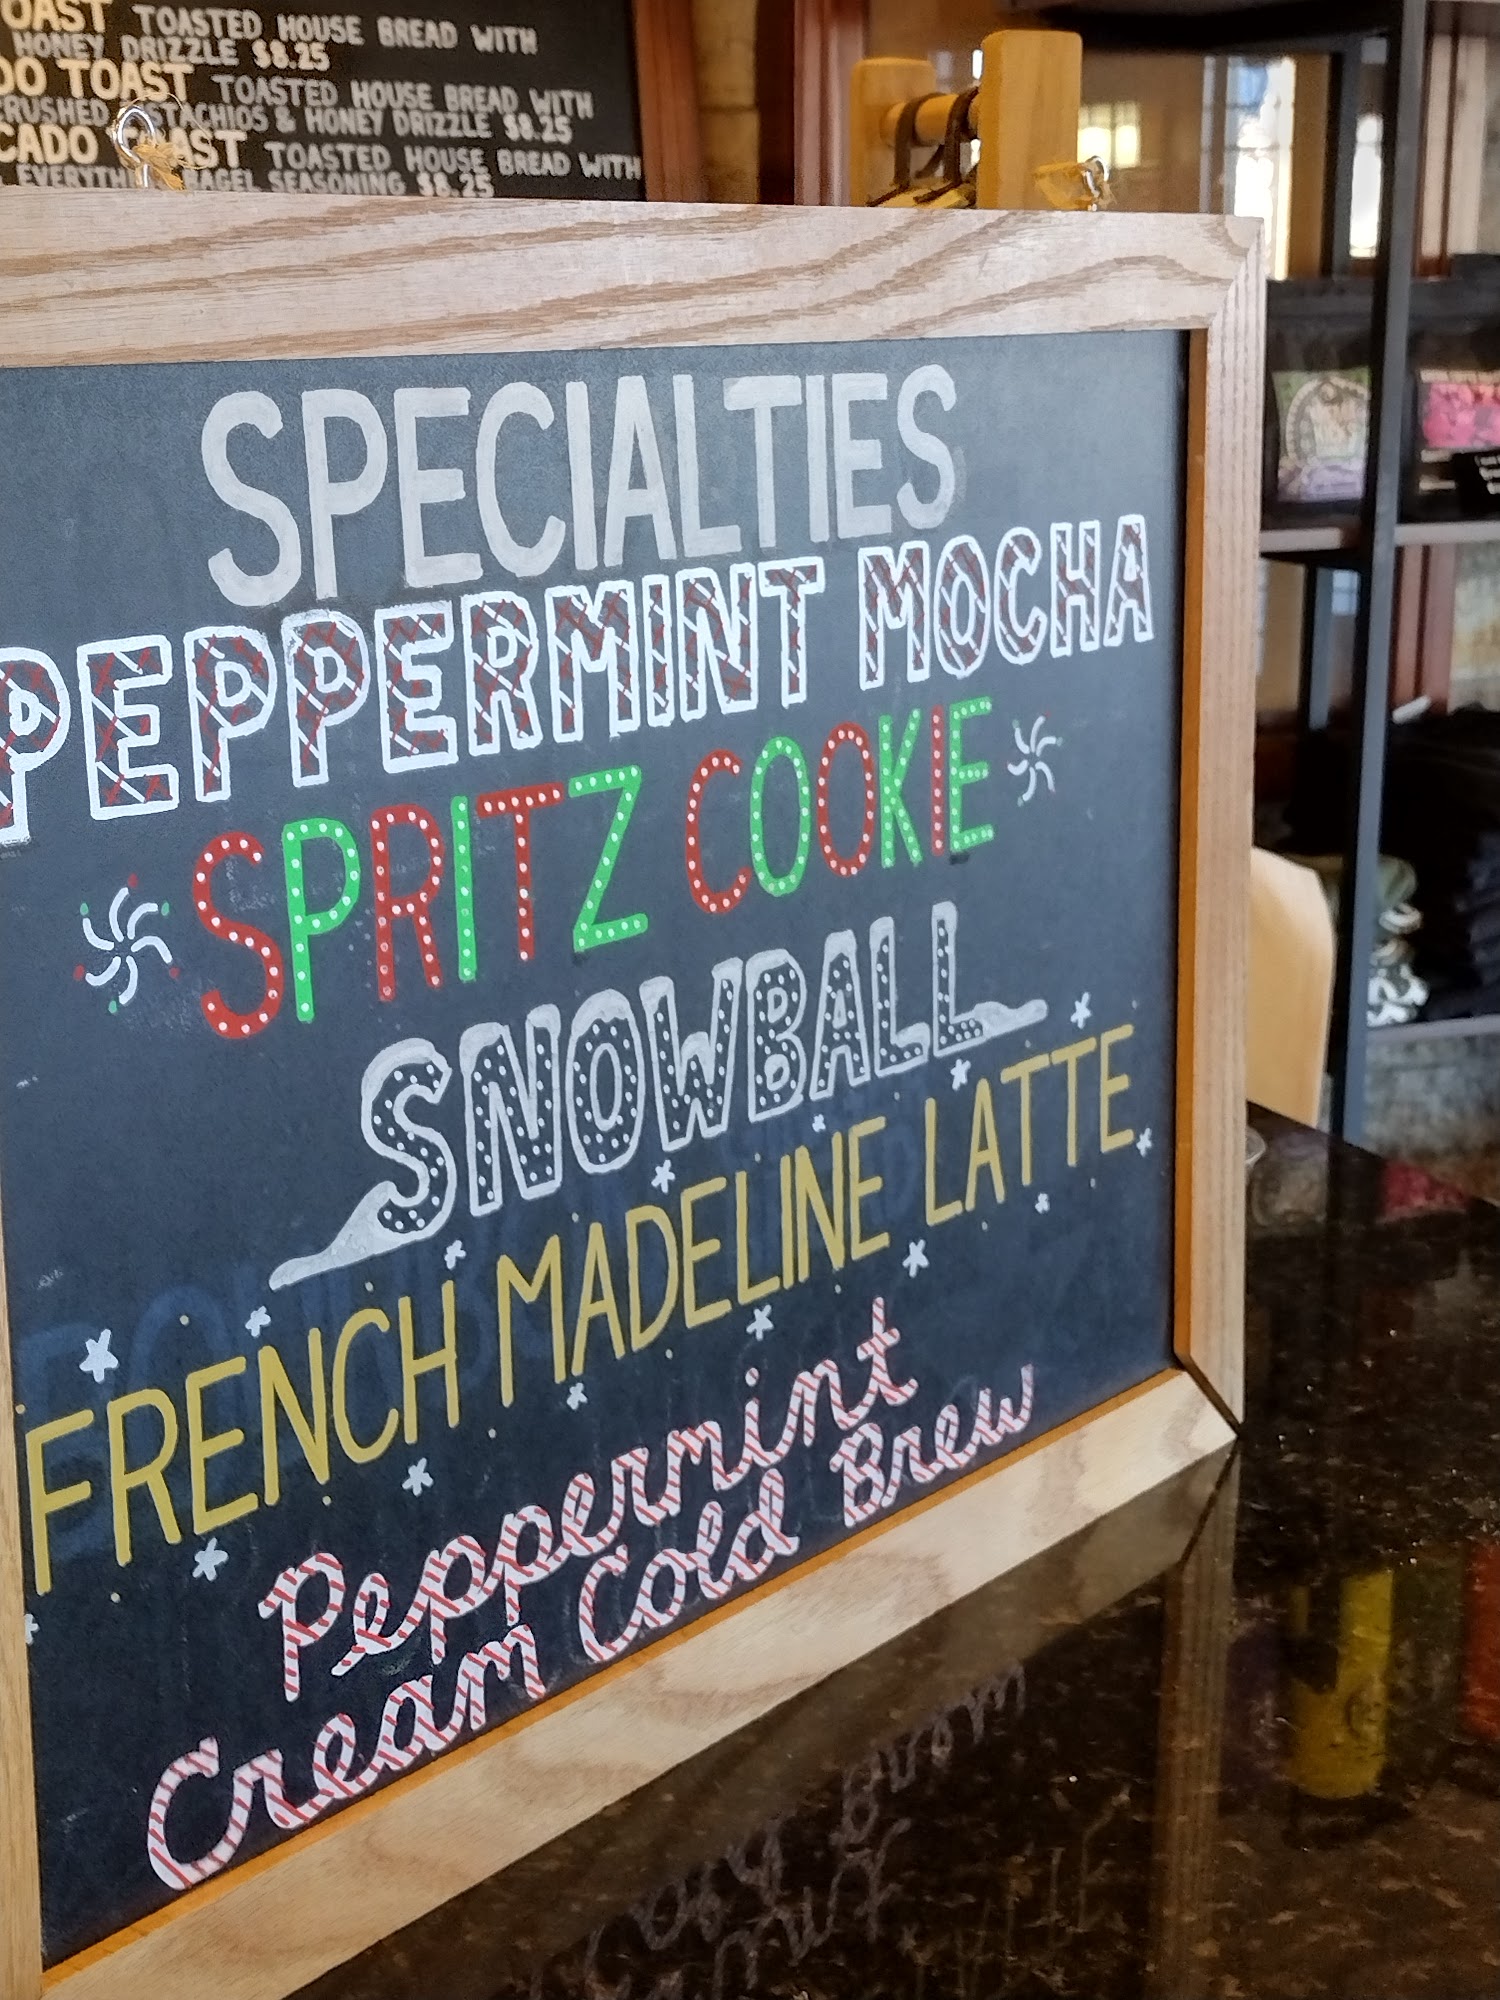 TOASTED HOUSE BREAD WITH
HONEY DRIZZLE $8.25
TOAST TOASTED HOUSE BREAD WITH
CRUSHED PISTACHIOS & HONEY DRIZZLE $8.25
TOAST TOASTED HOUSE BREAD WITH
EVERYTHING BAGEL SEASONING $8.25
SPECIALTIES
PEPPERMINT MOCHA
SPRITZ COOKIE
SNOWBALL
FRENCH MADELINE LATTE
Peppermint
Cream Cold Brew